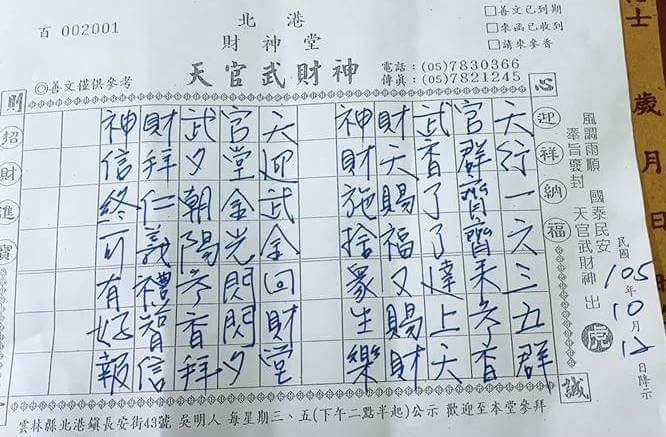 百 002001
北港
財神堂
天官武財神
□善文已到期
□來函已收到
□請來參香
電話：(05)7830366
傳眞：(05)7821245
◎善文僅供參考
心
誠
則
迎祥納福
招財進寶
風調雨順 國泰民安
奉旨褒封 天官武財神 出
虎
民國105年10月12日降示
天行一六三五群
官群賢齊來參香
武香了了達上天
財天賜福又賜財
神財施捨眾生樂
天迎武金回財堂
官堂金光閃閃夕
武夕朝陽參香拜
財拜仁義禮智信
神信終可有好報
雲林縣北港鎮長安街43號 吳明人 每星期三、五(下午二點半起)公示 歡迎至本堂參拜
士 歲月日